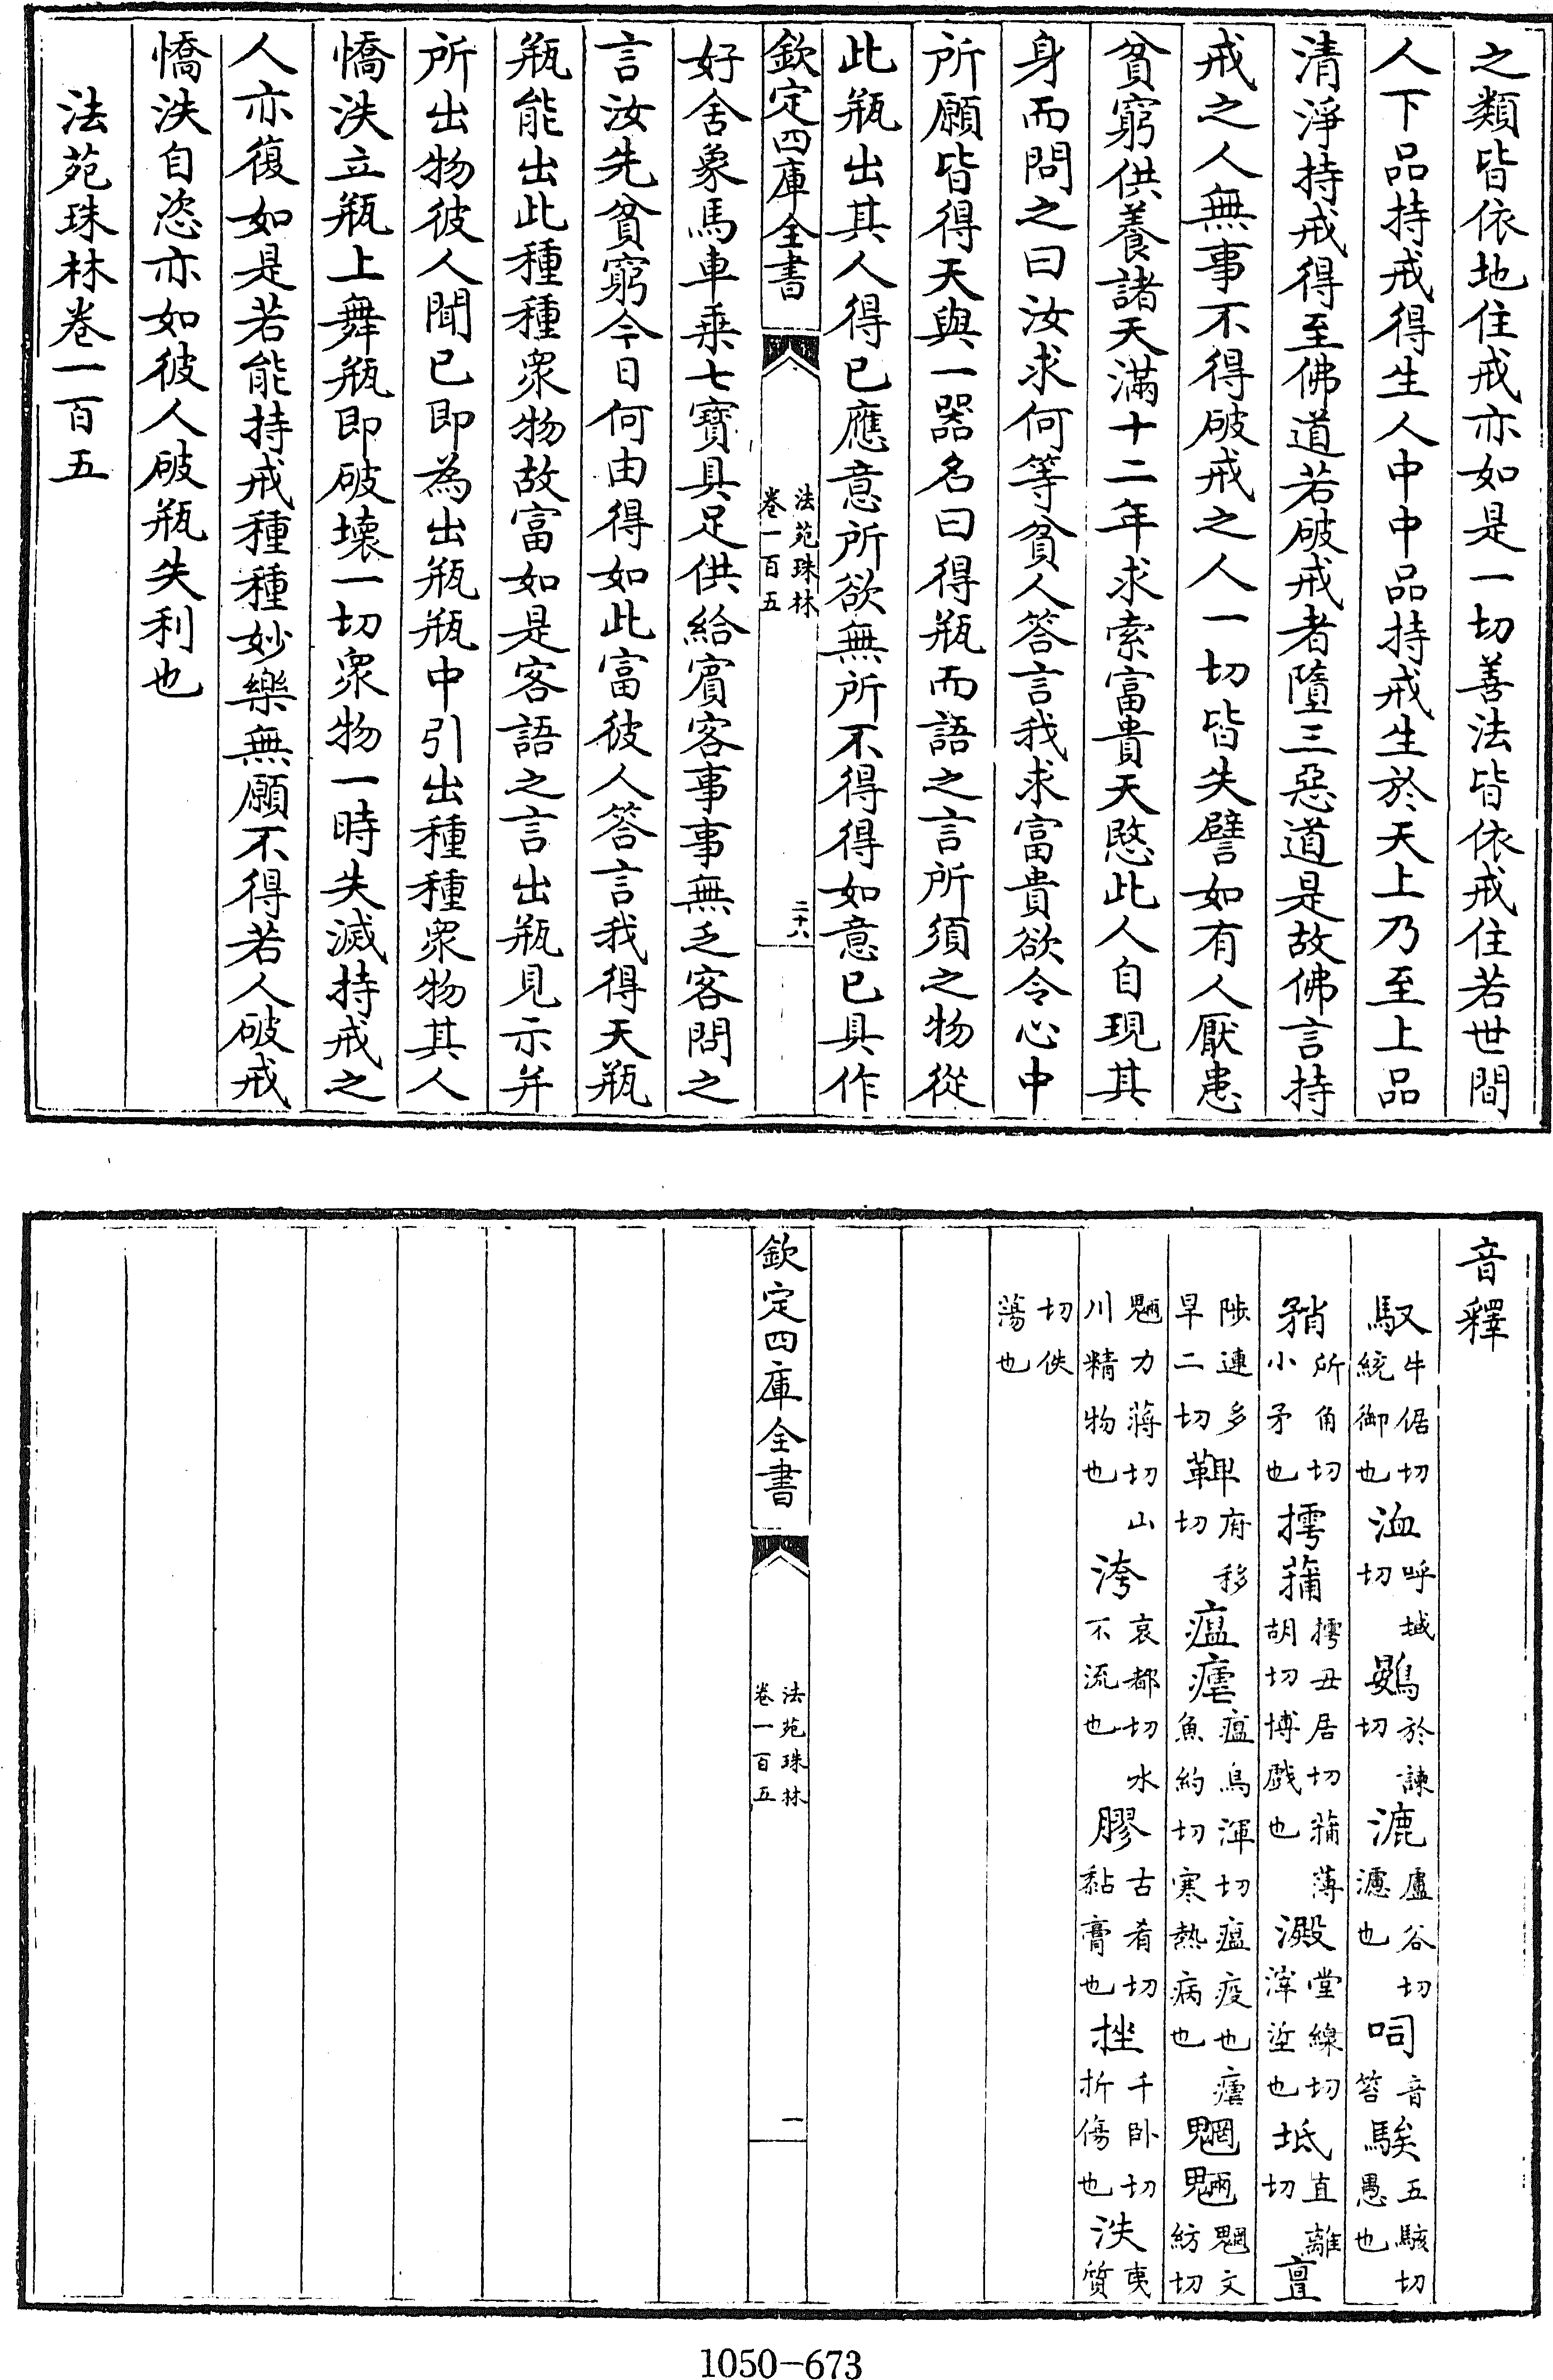 之類皆依地住戒亦如是一切善法皆依戒住若世間
人下品持戒得生人中中品持戒生於天上乃至上品
清淨持戒得至佛道若破戒者墮三惡道是故佛言持
戒之人無事不得破戒之人一切皆失譬如有人厭患
貧窮供養諸天滿十二年求索富貴天愍此人自現其
身而問之曰汝求何等貧人答言我求富貴欲令心中
所願皆得天與一器名曰得瓶而語之言所須之物從
此瓶出其人得已應意所欲無所不得得如意已具作
欽定四庫全書
法苑珠林
卷一百五
二十六
好舍象馬車乗七寳具足供給賓客事事無乏客問之
言汝先貧窮今日何由得如此富彼人答言我得天瓶
瓶能出此種種衆物故富如是客語之言出瓶見示并
所出物彼人聞已即為出瓶瓶中引出種種衆物其人
憍泆立瓶上舞瓶即破壊一切衆物一時失滅持戒之
人亦復如是若能持戒種種妙樂無願不得若人破戒
憍泆自恣亦如彼人破瓶失利也
法苑珠林卷一百五
音釋
馭牛倨切統御也洫呼域切鷃於諫切漉盧谷切濾也呞音笞騃五駭切愚也
矟所角切小矛也摴蒱摴丑居切蒱薄胡切博戲也澱堂練切滓垽也坻直離切亶
陟連多旱二切鞞府移切瘟瘧瘟烏渾切瘟疫也瘧魚約切寒熱病也魍魎魍文紡切
魎力蔣切山川精物也洿哀都切水不流也膠古肴切黏膏也挫千卧切折傷也泆夷質
切佚蕩也
欽定四庫全書
法苑珠林
卷一百五
一
1050-673